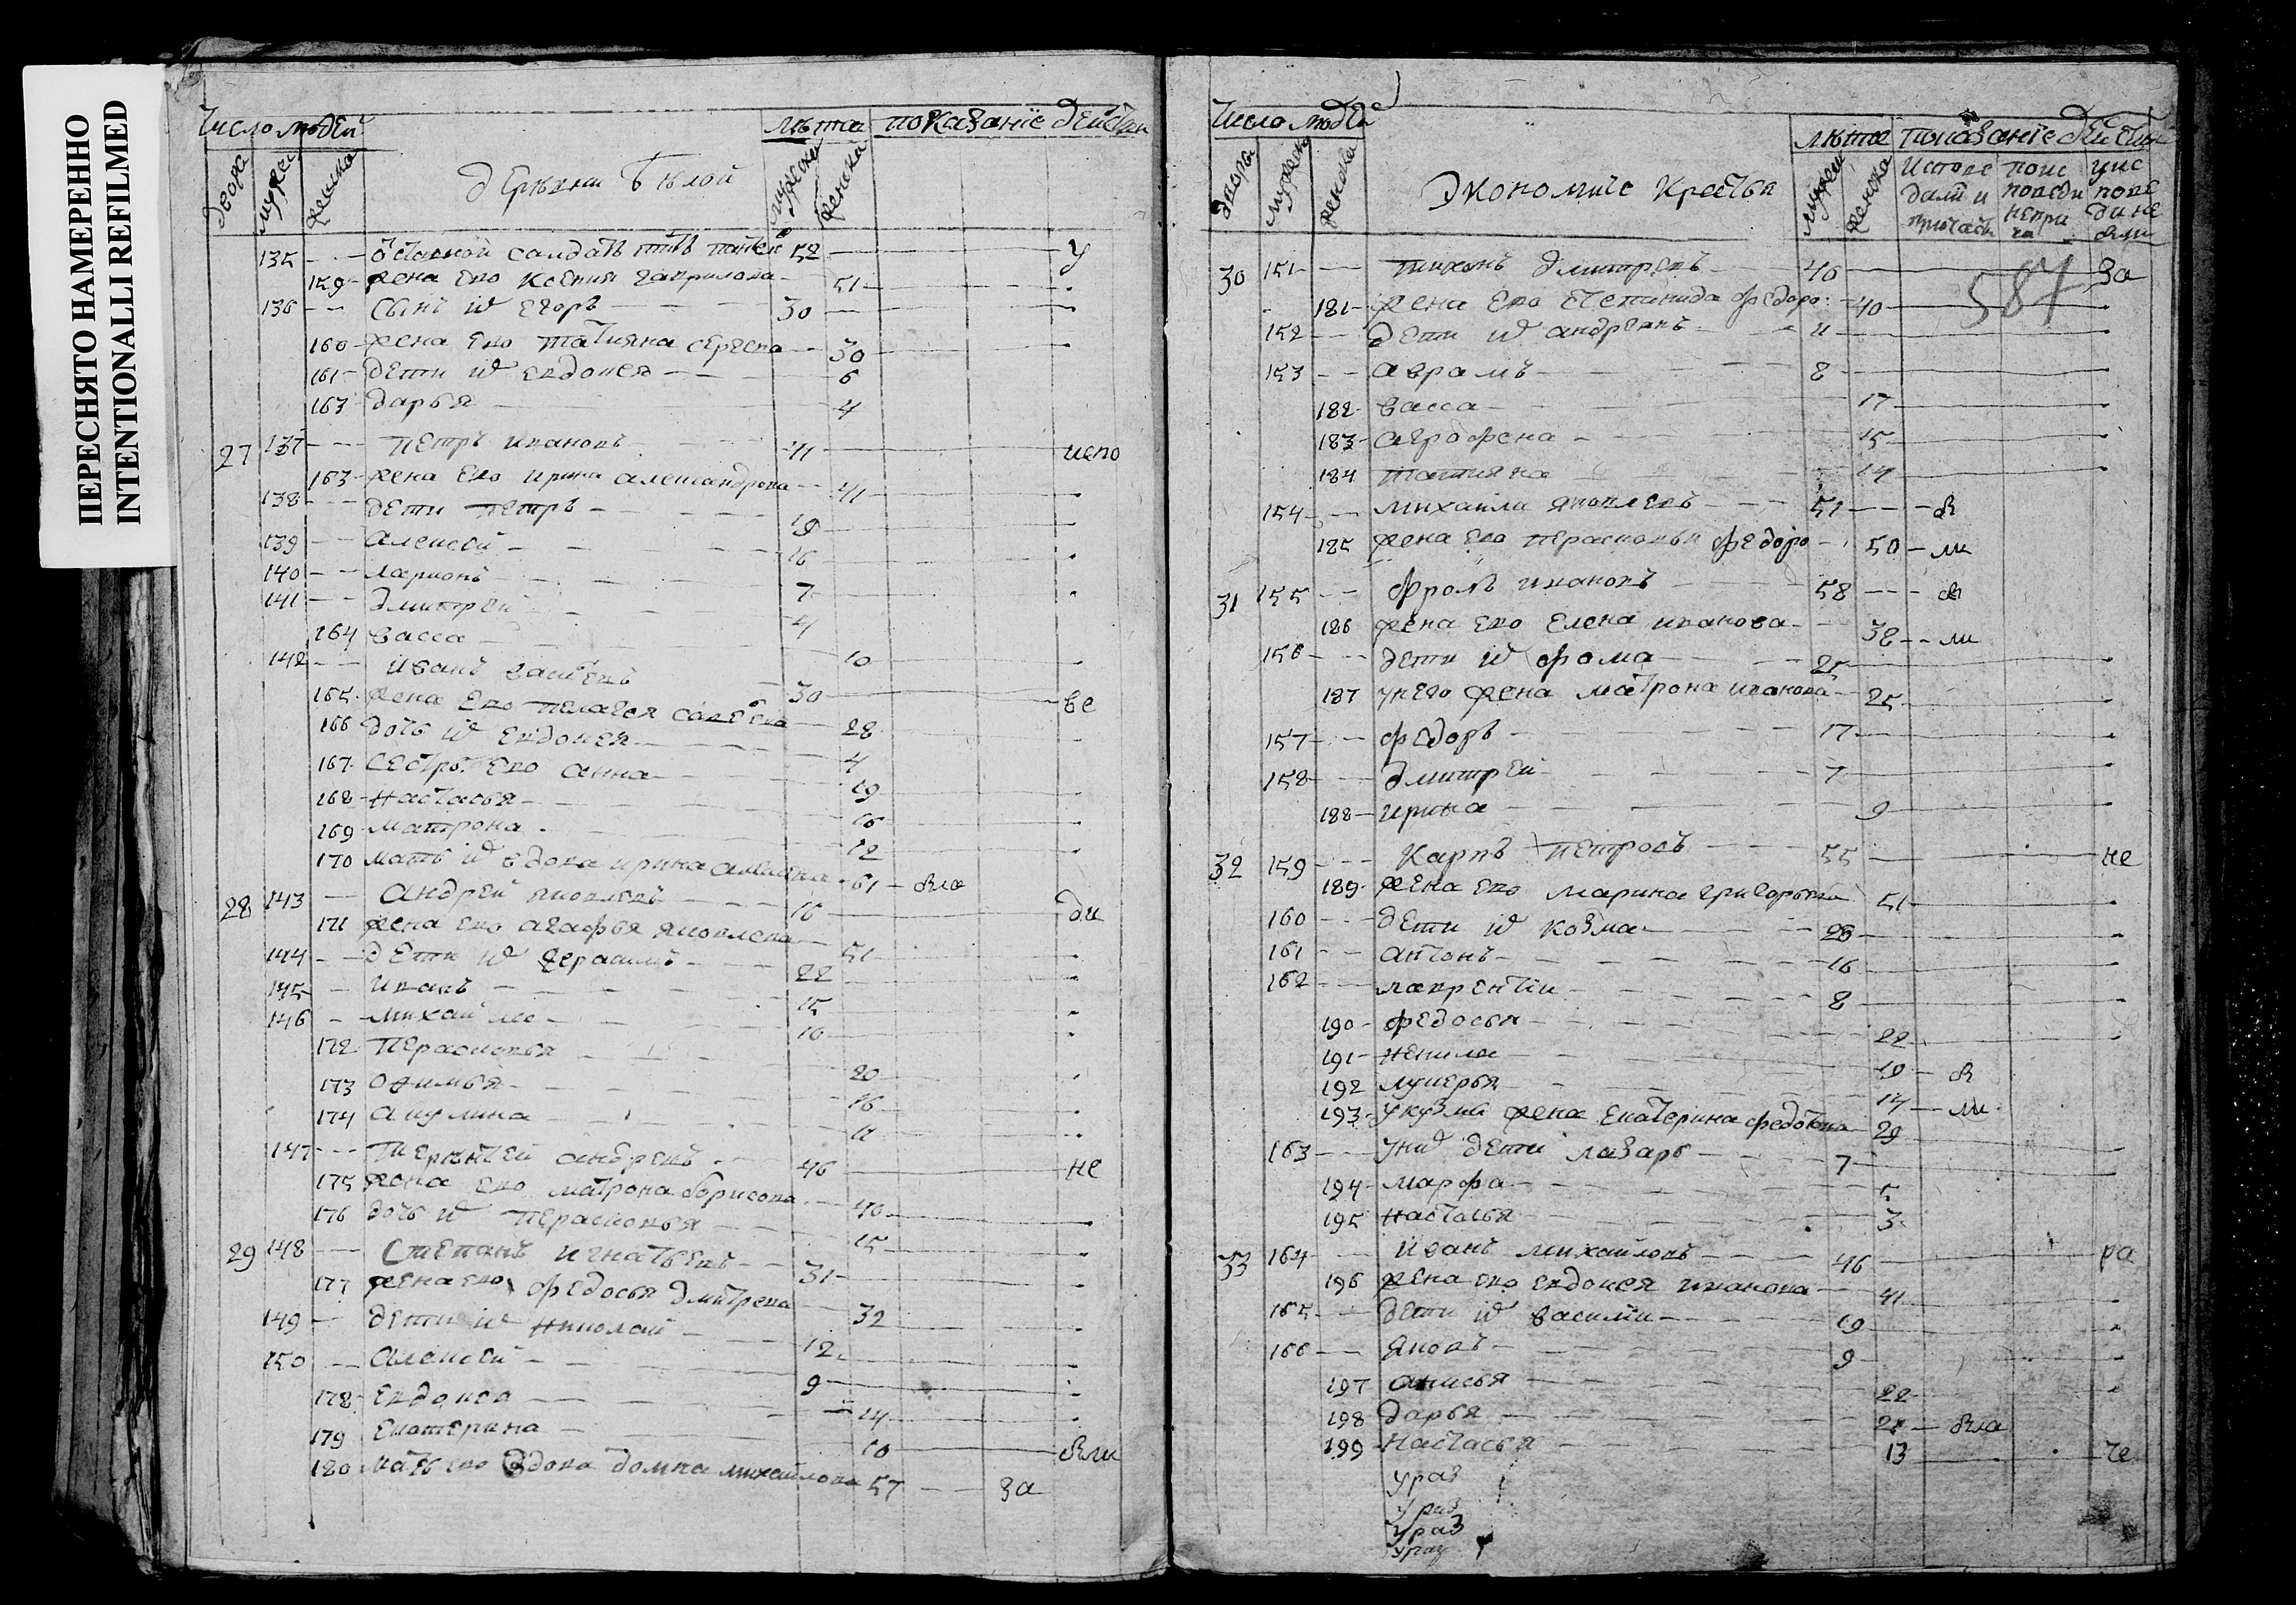 ПЕРЕСНЯТО НАМЕРЕННО
INTENTIONALLI REFILMED
Число людей
лѣта показанїе действи
двора
мужес
женска
деревни бѣлой
мужеска
женска
135 отставной салдатъ 52 У
159 жена ево Ксения гаврилова 51
136 сынъ их егоръ 30
160 жена ево татияна сергеева 30
161 дети их евдокея 6
163 дарья 4
27 137 петръ ивановъ 41 испо
163 жена ево ирина александрова 41
138 дети петръ 19
139 алексей 16
140 ларионъ 7
141 дмитрей 4
164 васса 10
142 иванъ 30 ве
165 жена ево пелагея савельева 28
166 дочь их евдокея 4
167 сестры ево анна 19
168 настасья 16
169 матрона 12
170 мать их вдова ирина 61 вла
28 143 андрей яковлевъ 16 ди
171 жена ево агафья яковлева 51
144 дети их герасимъ 22
145 иванъ 15
146 михайло 10
172 перасковья 20
173 офимья 16
174 акулина 11
147 терентей андревъ 46 не
175 жена ево матрона борисова 40
176 дочь их перасковья 15
29 148 степанъ игнатьевъ 31
177 жена ево федосья дмитрева 32
149 дети их николай 12
150 алексей 9
178 евдокея 14
179 екатерина 10 вли
180 мать ево вдова домна михайлова 57 за
Число людей
лѣта показанїе действи
двора
мужеска
женска
Экономиче крестья
мужеск
женска
испове дали и причасти
поис поведи непри ча
у ис пове ди не были
587
30 151 тихонъ дмитревъ 40 за
181 жена ево федоро 40
152 дети их андреянъ 11
153 аврамъ 8
182 васса 17
183 аграфена 15
184 татияна 14
154 михаила яковлевъ 51 в
185 жена ево перасковья федоро 50 ли
31 155 фролъ ивановъ 58 в
186 жена ево елена иванова 38 ли
156 дети их фома 25
187 у него жена матрона иванова 25
157 федоръ 17
158 дмитрей 7
188 ирина 9
32 159 карпъ петровъ 55 не
189 жена ево марина григорьева 51
160 дети их козма 23
161 антонъ 16
162 лаврентїи 8
190 федосья 22
191 ненила 19 в
192 лукерья 14 ли
193 у кузмы жена екатерина федотова 29
163 у них дети лазарь 7
194 марфа 5
195 настасья 3
33 164 иванъ михайловъ 46 ра
196 жена ево евдокея иванова 41
165 дети их василїи 19
166 яковъ 9
197 анисья 22
198 дарья 21 вла
199 настасья 13 че
ураз
ураз
ураз
ураз